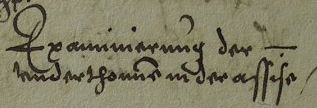 Examinierung der —
underthonnē in der assise